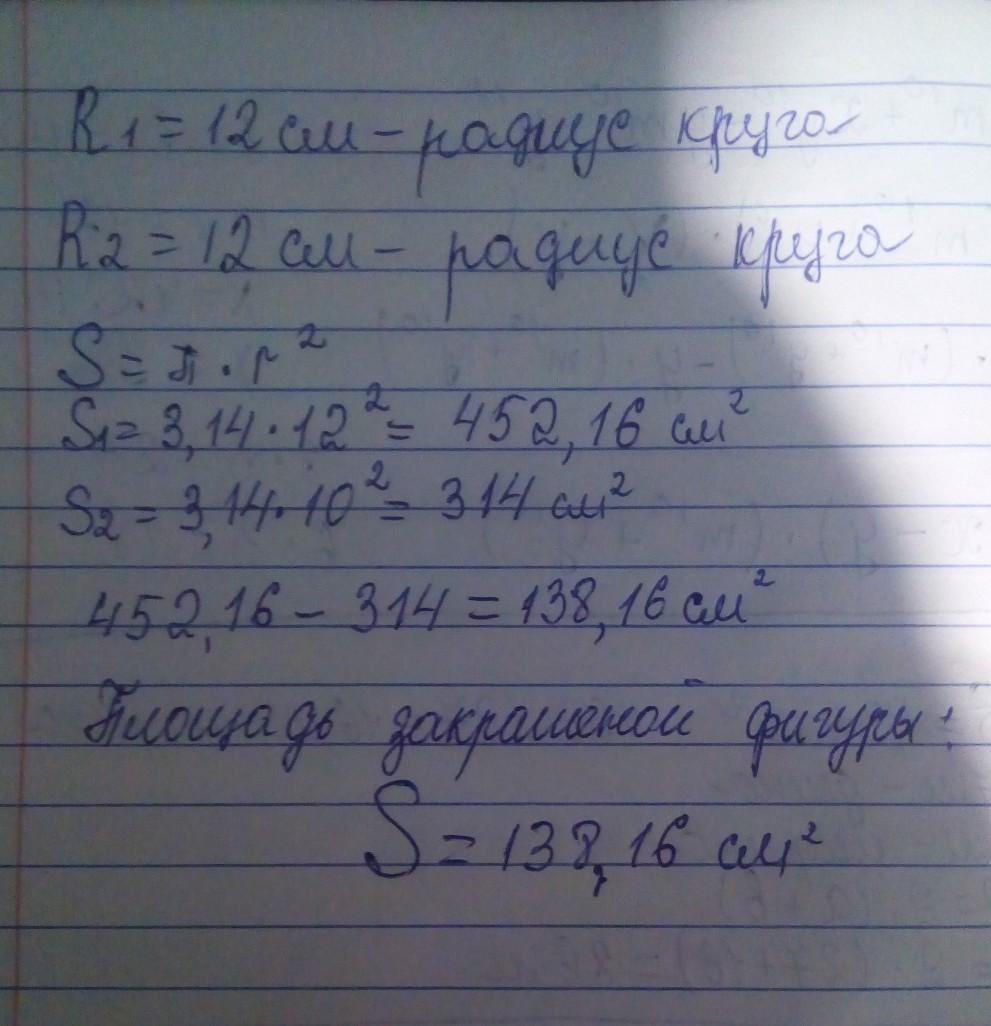 R1 = 12 см – радиус круга
R2 = 12 см – радиус круга
S = π · r²
S1 = 3,14 · 12² = 452,16 см²
S2 = 3,14 · 10² = 314 см²
452,16 – 314 = 138,16 см²
Площадь закрашеной фигуры:
S = 138,16 см²